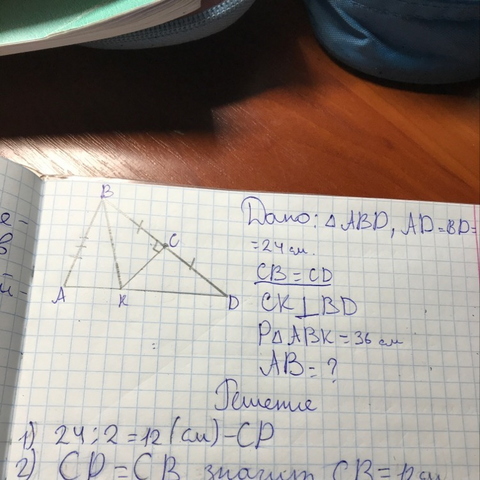 е-
в
й-
B
C
A
K
D
Дано: △ABD, AD=BD=
=24 см.
CB = CD
CK⊥BD
P△ABK=36 см
AB=?
Решение
1) 24:2=12(см)-CD
2) CD=CB, значит CB=12см